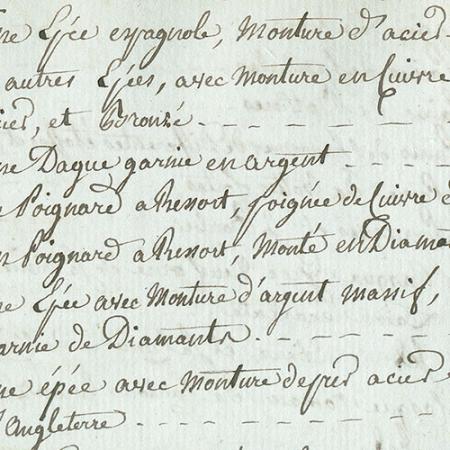 ne Épée espagnole, Monture d'acier
autres Épées, avec Monture en Cuivre
cier, et Bronzé
ne Dague garnie en argent
Poignard a Ressort, poignée de Cuivre d
n Poignard a Ressort, Monté en Diama
ne Épée avec Monture d'argent massif,
arnie de Diamants
ne épée avec Monture de pur acier
'Angleterre